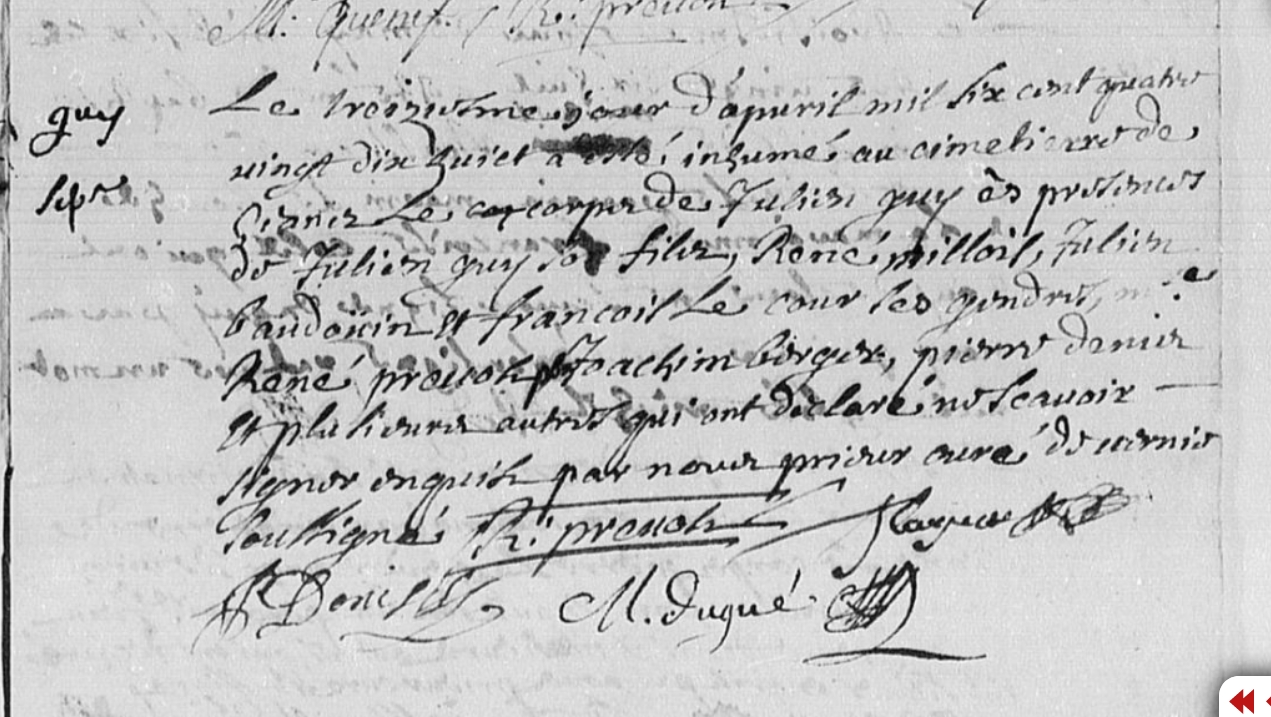 M. R: preuost
guy
sep^re
Le treiziesme jour d'apuril mil six cent quatre
vingt dix huict a esté inhumé au cimetierre de
Cernie Le corps de Julien guy ès presences
de Julien guy so fils, René milloil, Julien
baudouin et francois Le cour ses gendres, m^e
René preuost Joachim berger, pierre denier
et plusieurs autres qui ont declaré ne scauoir
signer enquis par nous prieur curé de cernie
soussigné R: preuost
P Denis M. duqué